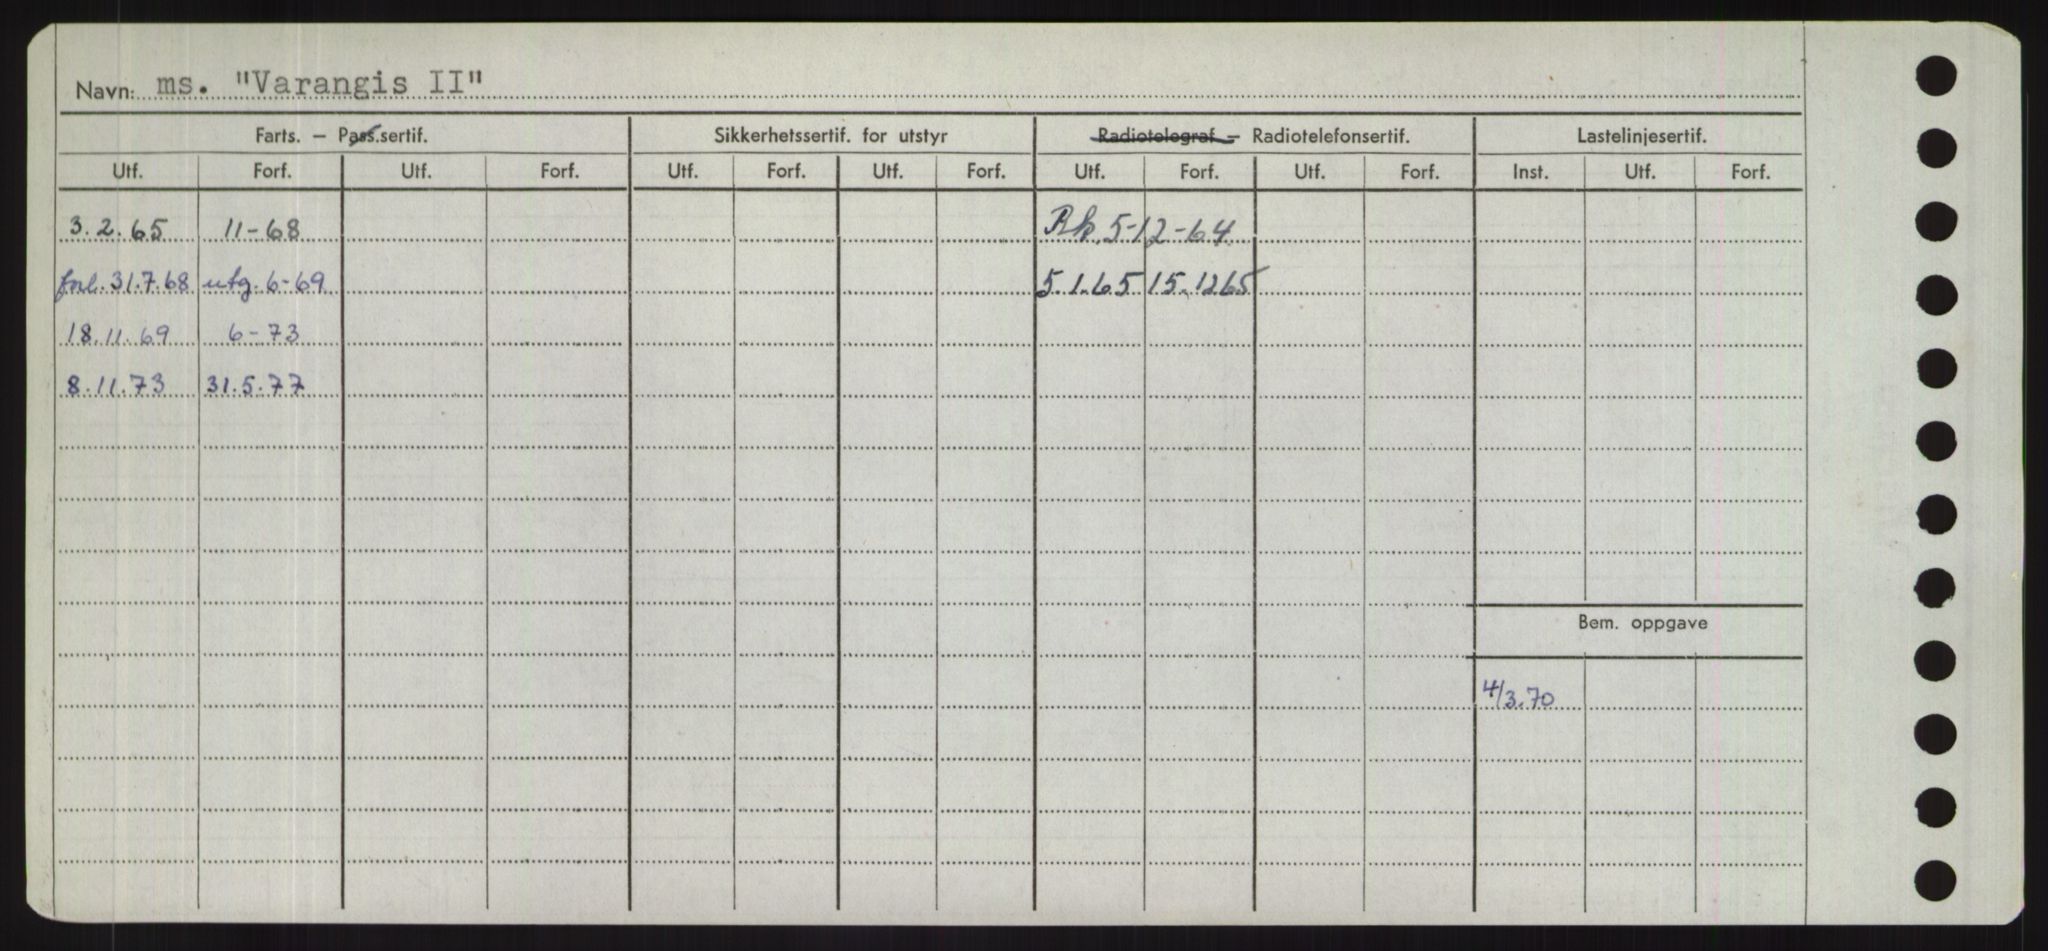 Navn: ms. "Varangis II"
Farts. – Pass.sertif. Sikkerhetssertif. for utstyr Radiotelegraf – Radiotelefonsertif. Lastelinjesertif.
Utf. Forf. Utf. Forf. Utf. Forf. Utf. Forf. Utf. Forf. Utf. Forf. Inst. Utf. Forf.
3.2.65 11-68 Rk. 5-12-64
forl. 31.7.68 utg. 6-69 5.1.65 15.1265
18.11.69 6-73
8.11.73 31.5.77
Bem. oppgave
4/3.70